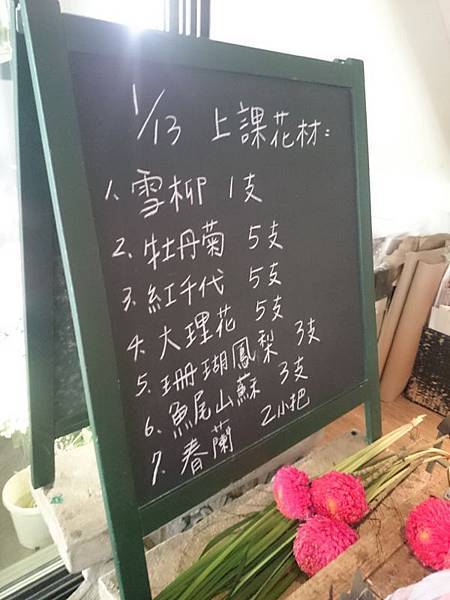 1/13 上課花材:
1. 雪柳 1支
2. 牡丹菊 5支
3. 紅千代 5支
4. 大理花 5支
5. 珊瑚鳳梨 3支
6. 魚尾山蘇 3支
7. 春蘭 2小把